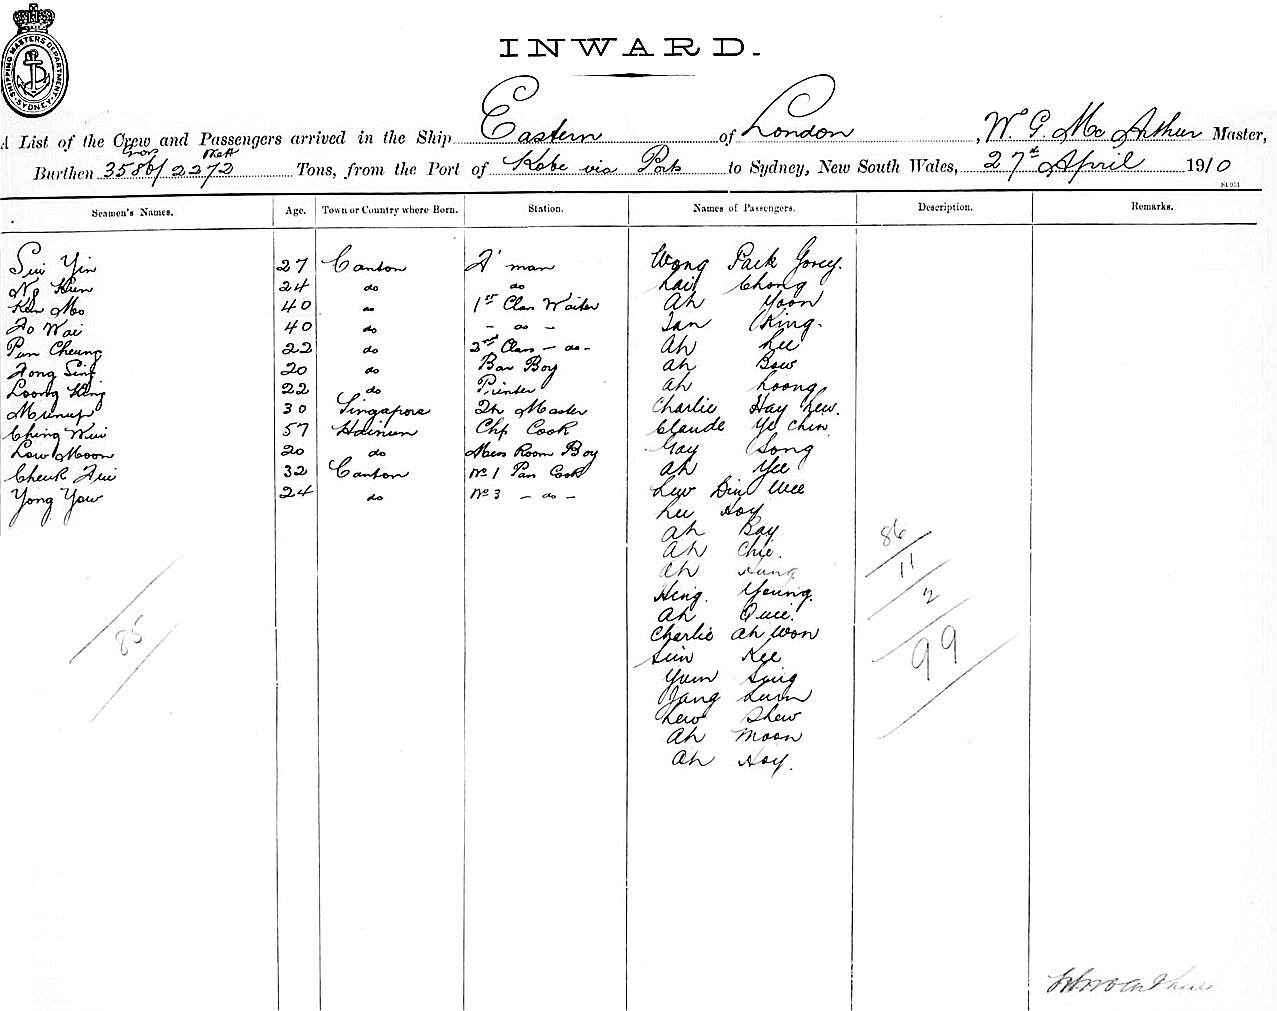 SHIPPING MASTERS DEPARTMENT SYDNEY
INWARD.
A List of the Crew and Passengers arrived in the Ship Eastern of London, W. G. Mc Arthur Master,
Gross Nett
Burthen 3586/2272 Tons, from the Port of Kobe via Ports to Sydney, New South Wales, 27th April 1910
Seamen's Names. Age. Town or Country where Born. Station. Names of Passengers. Description. Remarks.
Sui Yin 27 Canton F'man Wong Pack Govey.
Ng Hun 24 do do Lai Chong
Kan Mo 40 do 1st Class Waiter Ah Yoon
Fo Wai 40 do - do - Tan King.
Pun Cheung 22 do 2nd Class - do - Ah Lee
Fong Sing 20 do Bar Boy Ah Bow
Loong King 22 do Printer Ah Loong
Munup 30 Singapore Qr Master Charlie Hay Lew.
Ching Wui 57 Hainan Chf Cook Claude Ye Chin
Low Moon 20 do Mess Room Boy Gay Song
Cheuk Fui 32 Canton No 1 Pan Cook Ah Yee
Yong Yow 24 do No 3 - do - Lew Din Wee
Lee Hoy
Ah Bay
Ah Chie.
Ah Hung
Hing. Young.
Ah Quie.
Charlie Ah Won
Sun Kee
Yum Sing
Jang Lum
Lew Shew
Ah Moon
Ah Hoy.
85
86
11
2
99